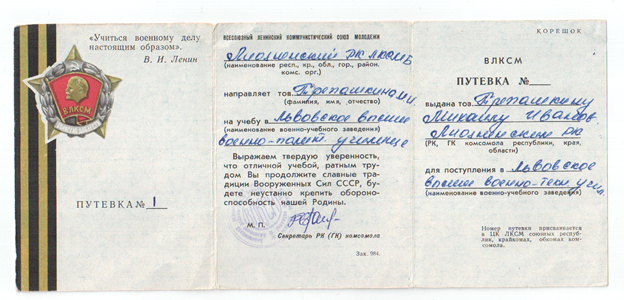 «Учиться военному делу
настоящим образом».
В. И. Ленин
ВЛКСМ
ПУТЕВКА № 1
ВСЕСОЮЗНЫЙ ЛЕНИНСКИЙ КОММУНИСТИЧЕСКИЙ СОЮЗ МОЛОДЕЖИ
РК ЛКСМБ
(наименование респ., кр., обл., гор., район.
комс. орг.)
направляет тов. Трепашкина М.И.
(фамилия, имя, отчество)
на учебу в Львовское высшее
(наименование военно-учебного заведения)
военно-полит. училище
Выражаем твердую уверенность,
что отличной учебой, ратным тру-
дом Вы продолжите славные тра-
диции Вооруженных Сил СССР, бу-
дете неустанно крепить обороно-
способность нашей Родины.
М. П.
Секретарь РК (ГК) комсомола
Зак. 984.
КОРЕШОК
ВЛКСМ
ПУТЕВКА №
выдана тов. Трепашкину
Михаилу Иванов
РК
(РК, ГК комсомола республики, края,
области)
для поступления в Львовское
высшее военно- учил
(наименование военно-учебного заведения)
Номер путевки присваивается
в ЦК ЛКСМ союзных респуб-
лик, крайкомах, обкомах ком-
сомола.